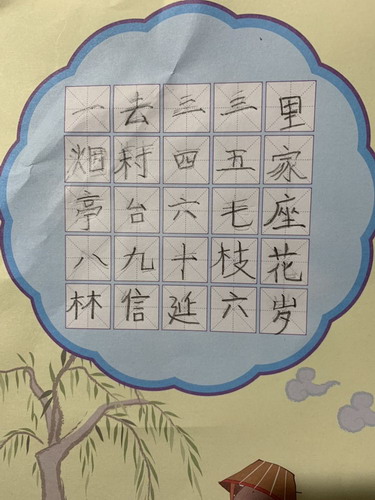 一去三三里
烟村四五家
亭台六毛座
八九十枝花
林信延六岁